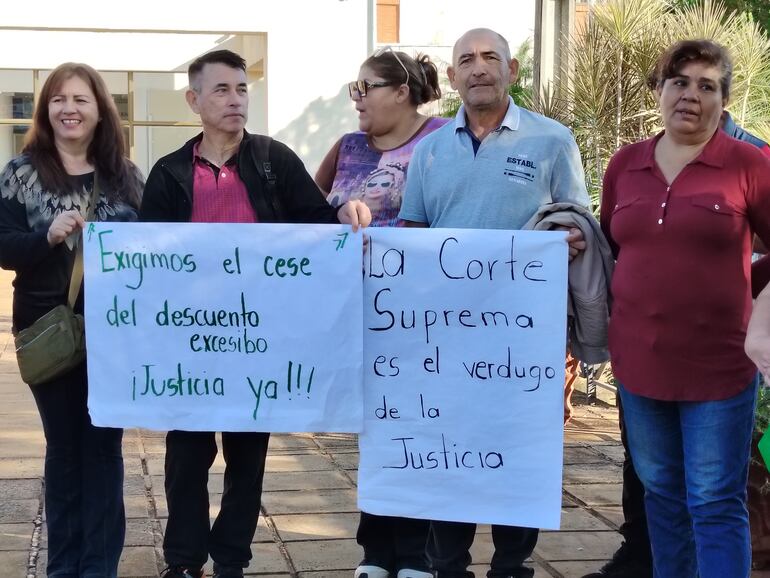 Exigimos el cese
del descuento
excesibo
¡Justicia ya!!!
La Corte
Suprema
es el verdugo
de la
Justicia
ESTABL.